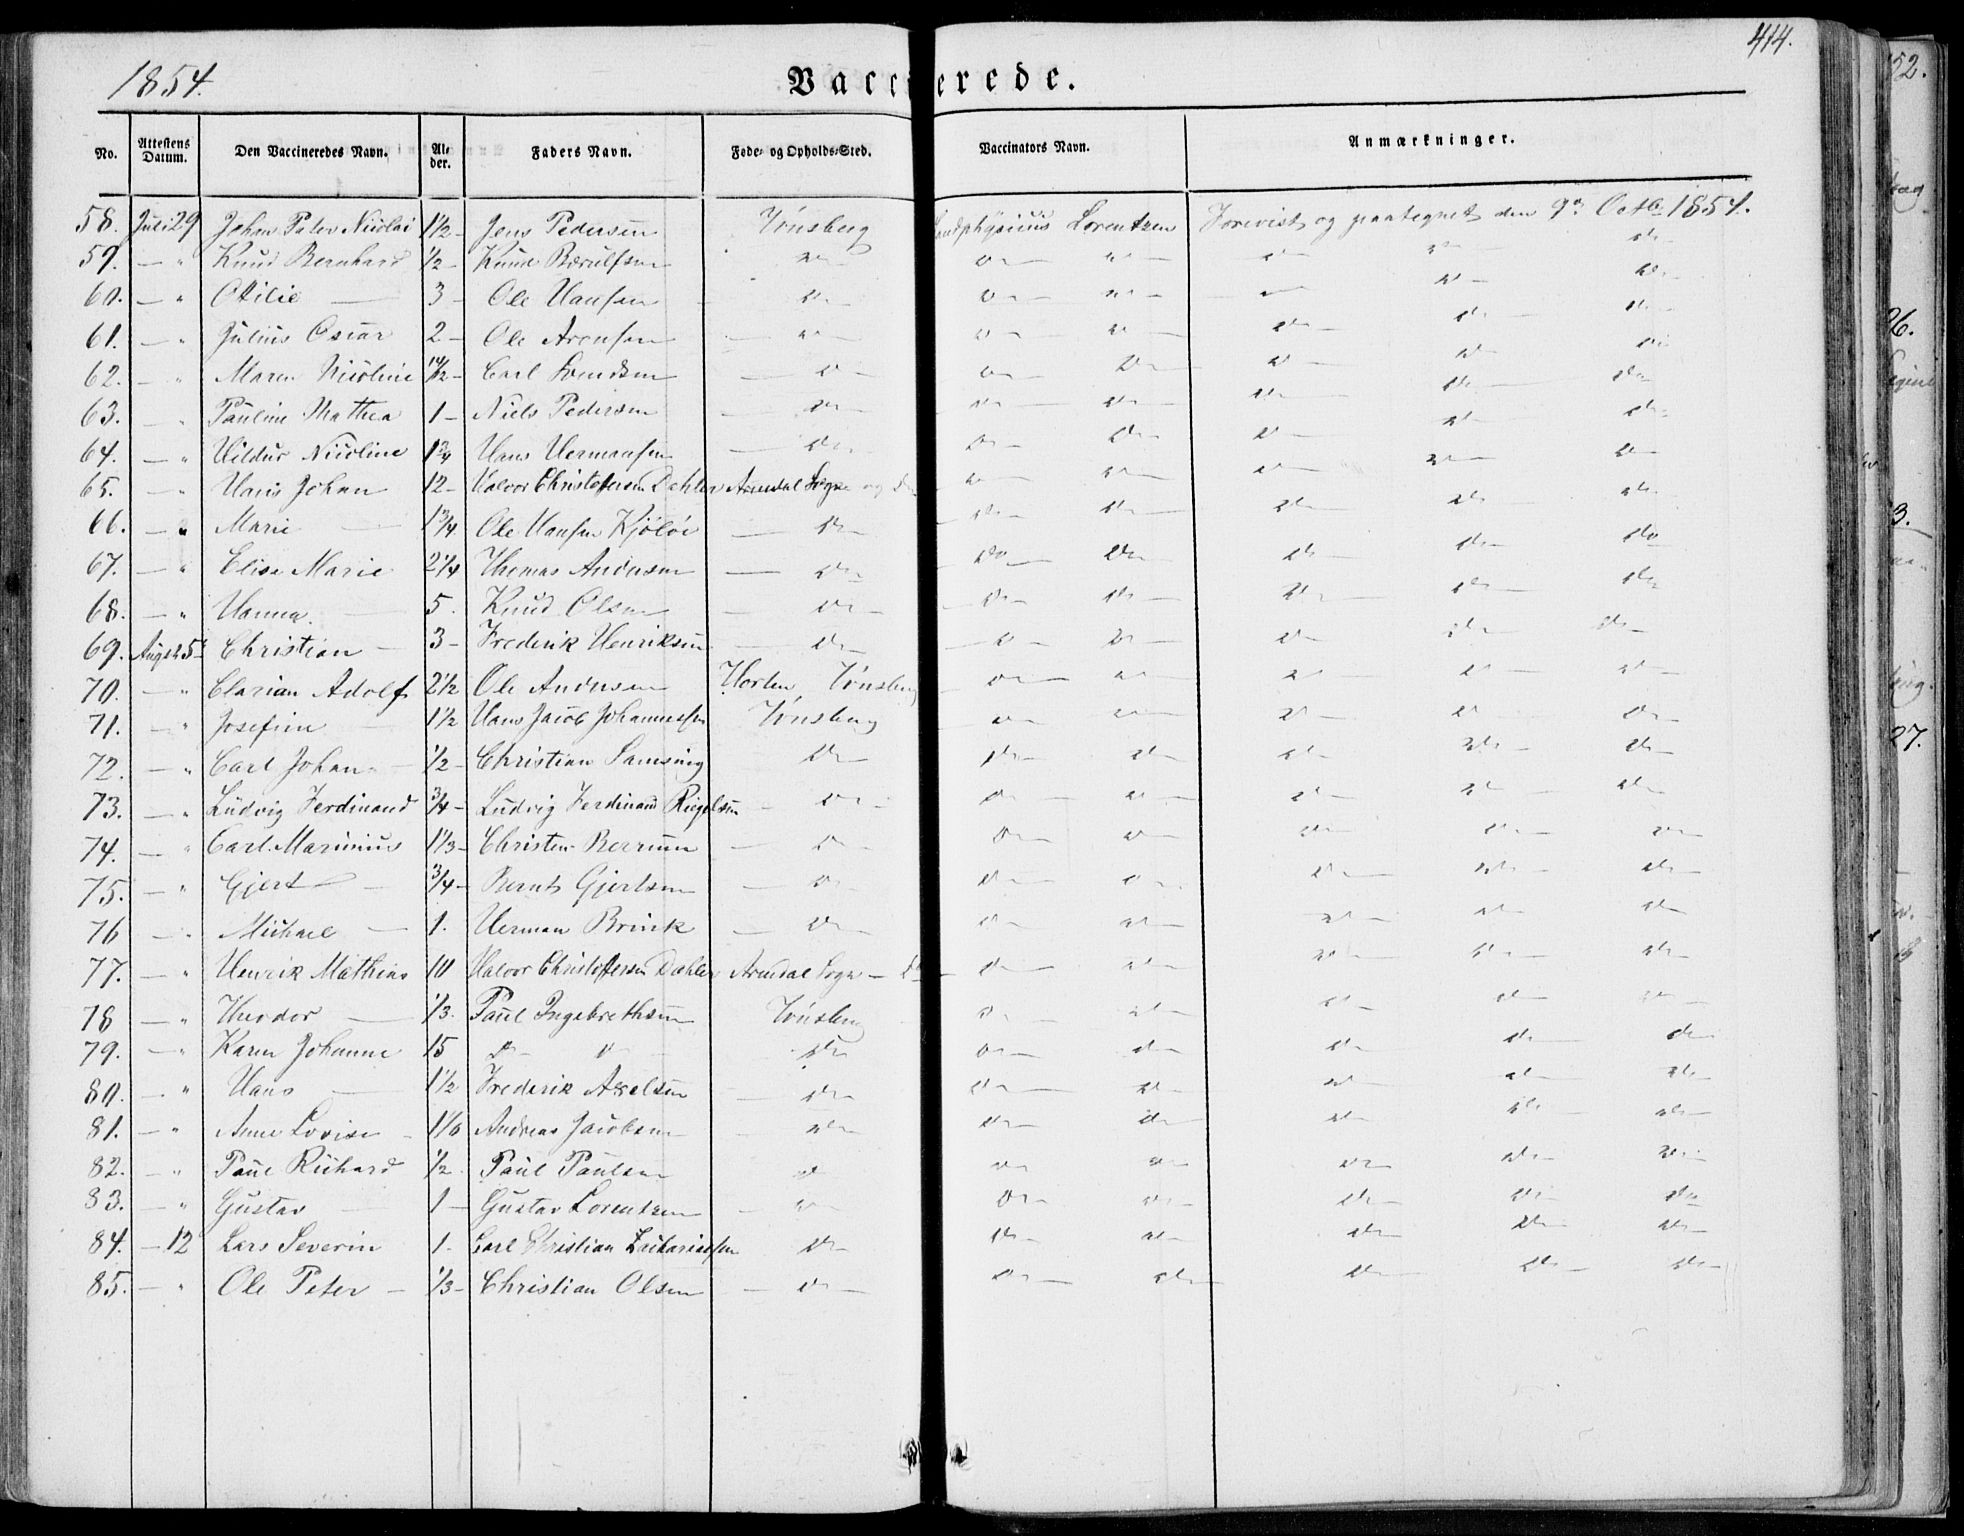 414.
1854.
Vaccinerede.
No. Attestens Datum. Den Vaccineredes Navn. Al-der. Faders Navn. Føde- og Opholds-Sted. Vaccinators Navn. Anmærkninger.
58. Juli 29 Johan Peter Nicolai 1½ – Jens Pedersen Tønsberg Landphysicus Lorentzen Forevist og paategnet den 9de Octb. 1854.
59. – " Knud Bernhard ½ – Knud Berulfsen do – do – do – do – do – do –
60. – " Otilie – 3 – Ole Hansen do – do – do – do – do – do –
61. – " Julius Oscar 2 – Ole Arensen do – do – do – do – do – do –
62. – " Maren Nicoline Carl Svendsen – do – do – do – do – do – do –
63. – " Pauline Mathea 1 – Niels Pedersen – do – do – do – do – do – do –
64. – " Hildur Nicoline 1¾ Hans Hermansen – do – do – do – do – do – do –
65. – " Hans Johan 12 – Halvor Christofersen Dehler Arendal Sogn og do do – do – do – do – do –
66. – " Marie – 1¾ Ole Hansen Kjöløe – do – do – do – do – do – do –
67. – " Elise Marie 2¼ Thomas Andersen – do – do – do – do – do – do
68. – " Hanna. – 5. Knud Olsen – do – do – do – do – do – do
69. Augst 5te Christian – 3 – Frederik Henriksen – do – do – do – do – do – do –
70. – " Clarian Adolf 2½ Ole Andersen Horten, Tønsberg do – do – do – do – do –
71. – " Josefine 1½ Hans Jacob Johannessen Tønsberg do – do – do – do – do –
72. – " Carl Johan – ½ – Christian Samsing do – do – do – do – do – do –
73. – " Ludvig Ferdinand ¾ – Ludvig Ferdinand Riegelsen – do – do – do – do – do – do –
74. – " Carl Marinius 1⅓ – Christen Berrum – do – do – do – do – do – do
75. – " Gjert – ¾ – Bernt Gjertsen – do – do – do – do – do – do –
76 – " Michael – 1. Herman Brink – do – do – do – do – do – do
77. – " Henrik Mathias 10 Halvor Christofersen Dæhler Arendal Sogn – do do – do – do – do – do –
78 – " Theodor – ⅓. Paul Ingebrethsen Tønsberg do – do – do – do – do –
79. – " Karen Johanne 15 do – do – do do – do – do – do – do
80. – " Hans – 1½ Frederik Axelsen – do – do – do – do – do – do –
81. – " Anne Lovise – 1⅙ Andreas Jacobsen – do – do – do – do – do – do –
82. – " Paul Richard ½ Paul Paulsen do do – do – do – do – do –
83. – " Gustav – 1 – Gustav Lorentzen – do – do – do – do – do – do
84. – 12 Lars Severin 1. Carl Christian Zachariassen do – do – do – do – do – do –
85. – " Ole Peter – ⅓ – Christian Olsen – do – do – do – do – do – do –